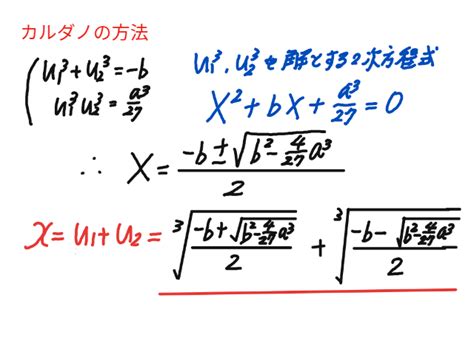 カルダノの方法
u₁³+u₂³=-b
u₁³u₂³=a³/27
u₁³, u₂³を解とする2次方程式
X²+bX+a³/27=0
∴ X=(-b±√(b²-4/27 a³))/2
x=u₁+u₂=³√((-b+√(b²-4/27 a³))/2)+³√((-b-√(b²-4/27 a³))/2)